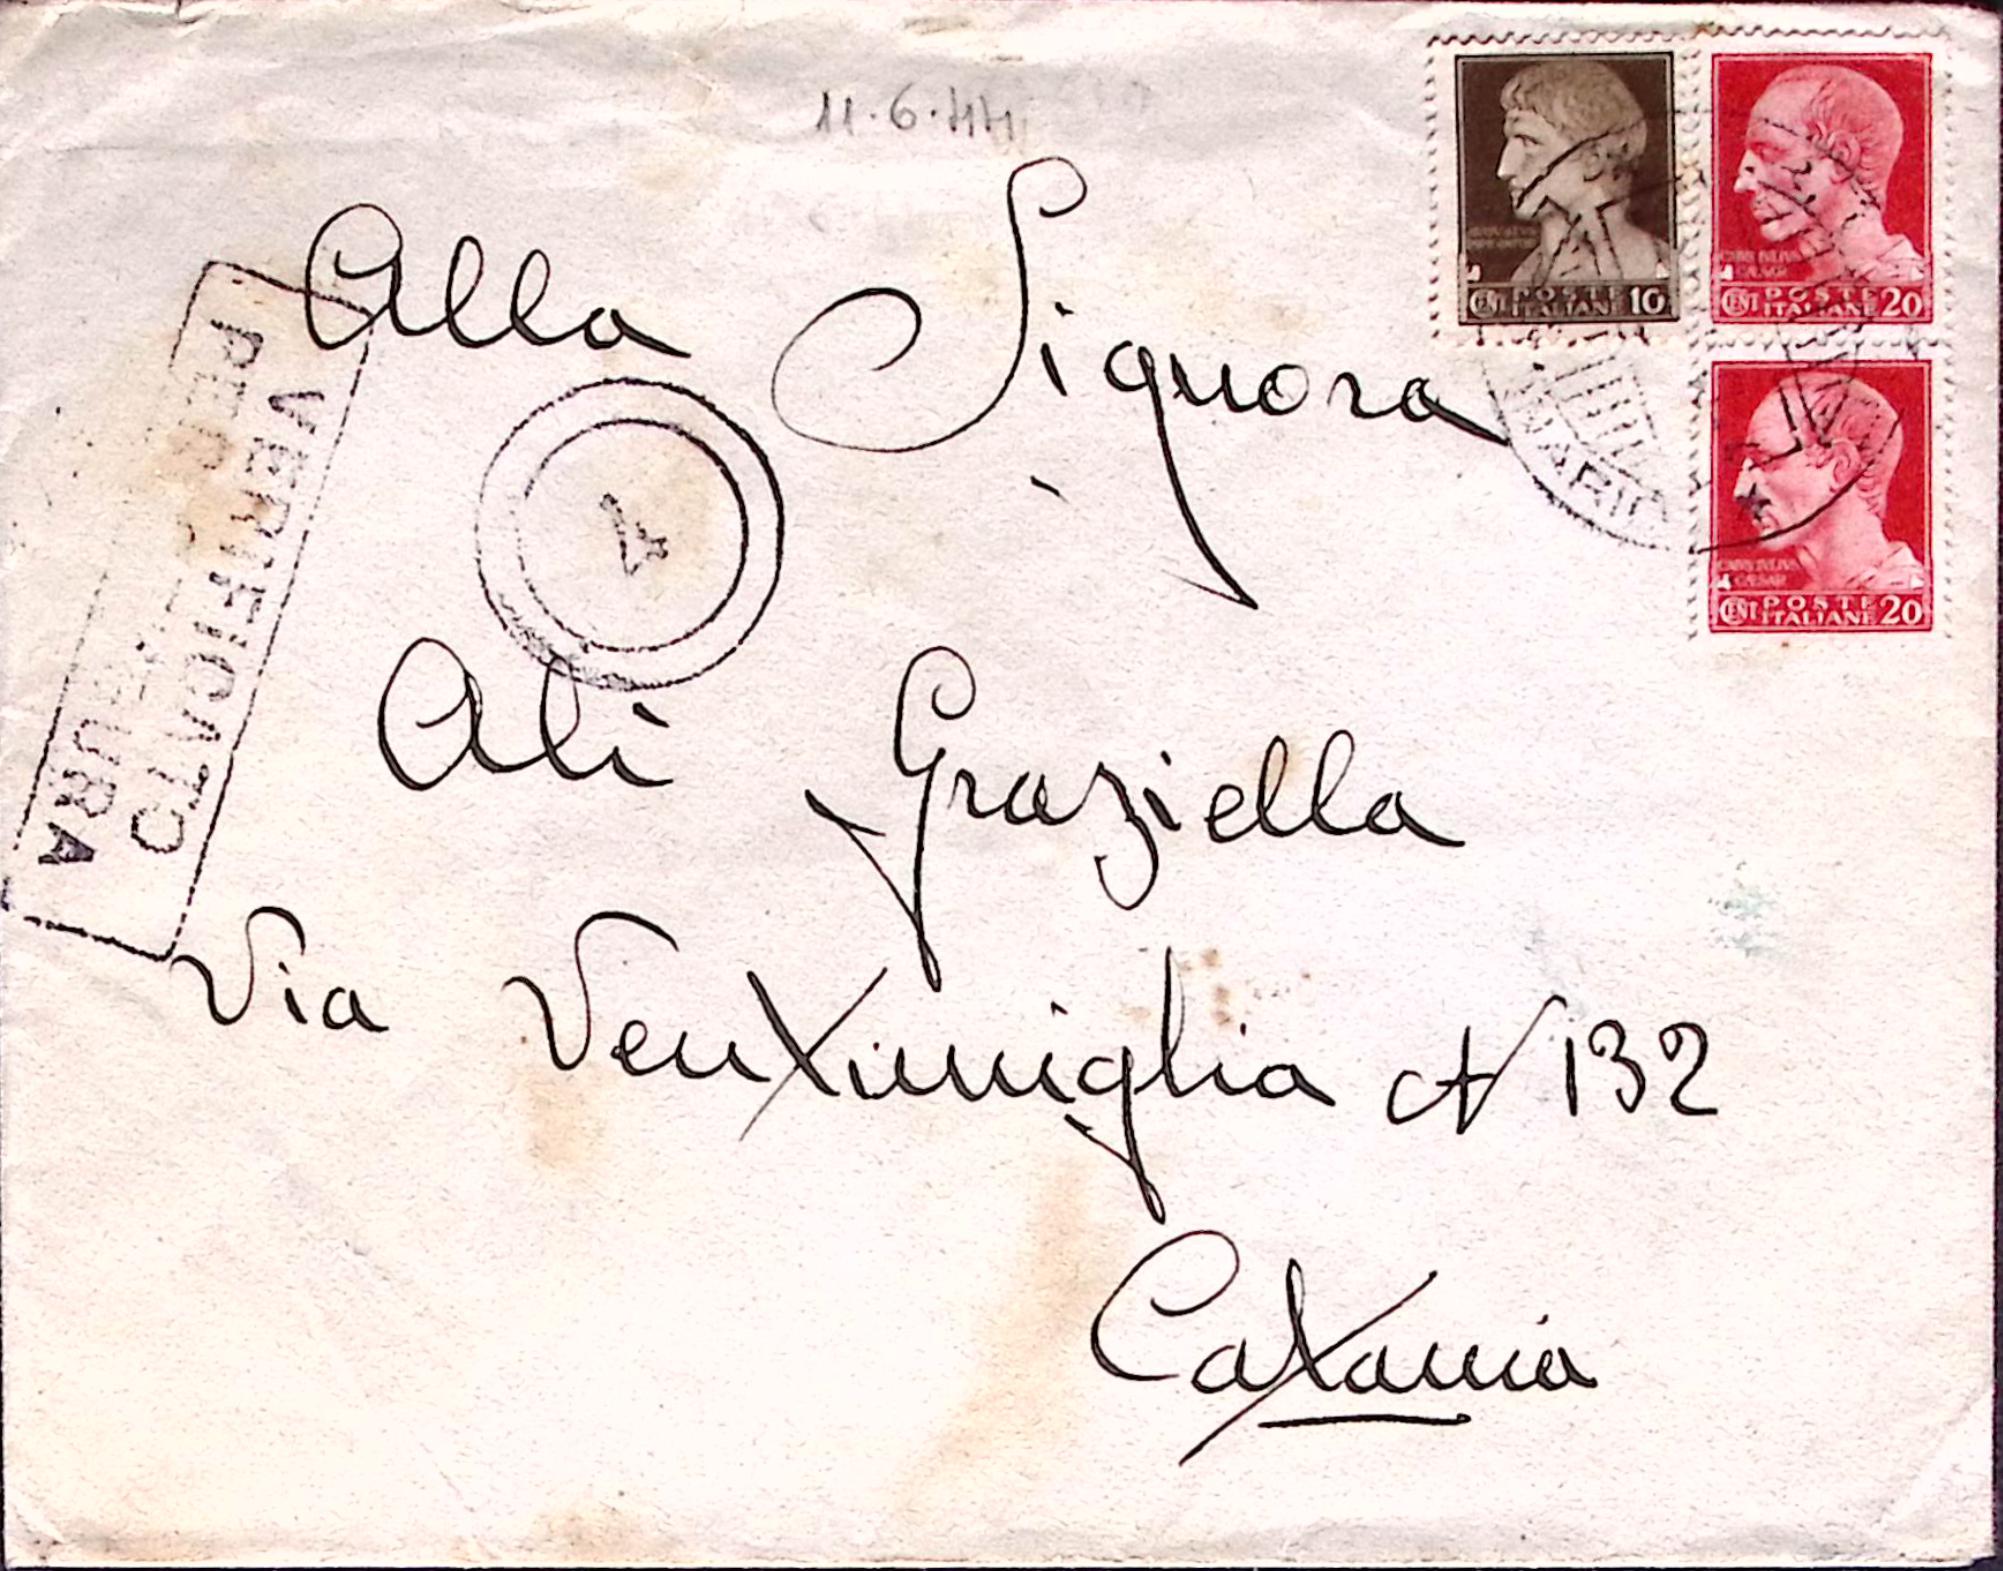 11.6.44
Alla Signora
Alì Graziella
Via Ventimiglia N 132
Catania
VERIFICATO
PER CENSURA
A
CENT POSTE ITALIANE 10
CENT POSTE ITALIANE 20
CAIVS IVLIVS
CAESAR
CENT POSTE ITALIANE 20
CAIVS IVLIVS
CAESAR